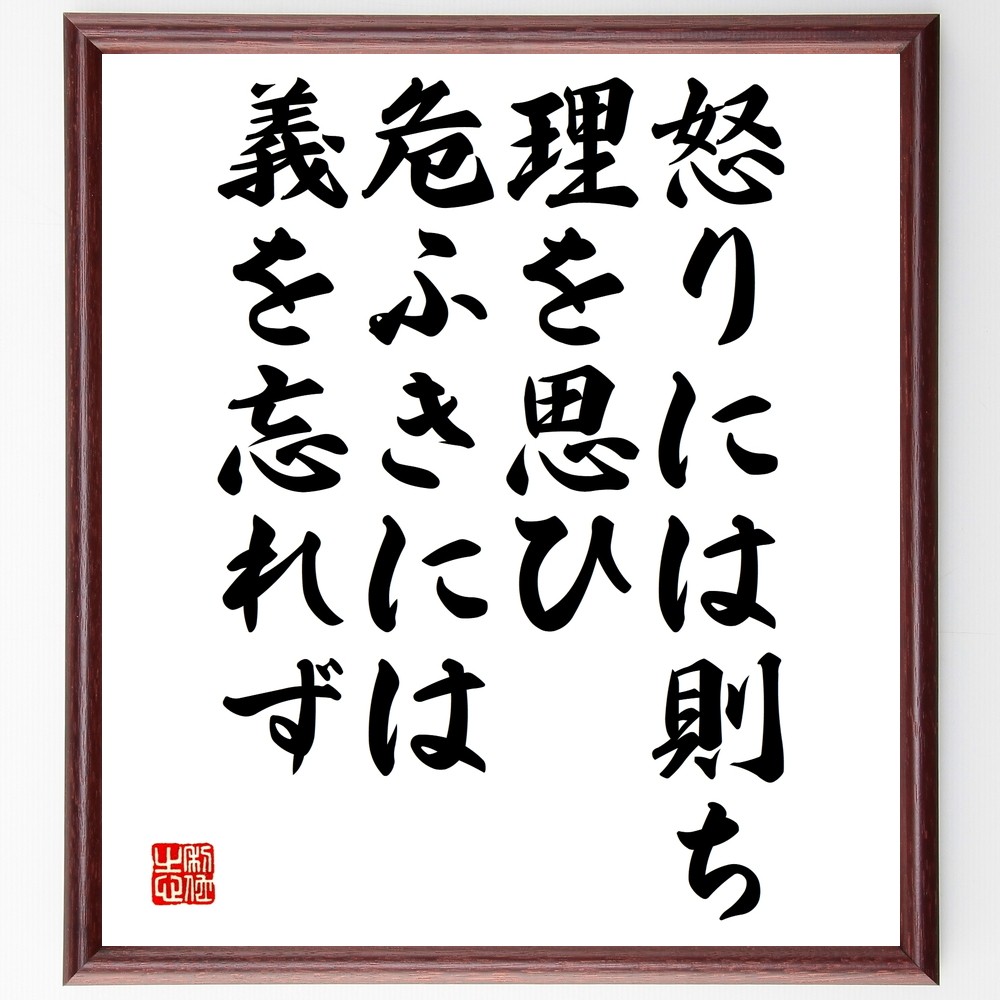 怒りには則ち
理を思ひ
危ふきには
義を忘れず